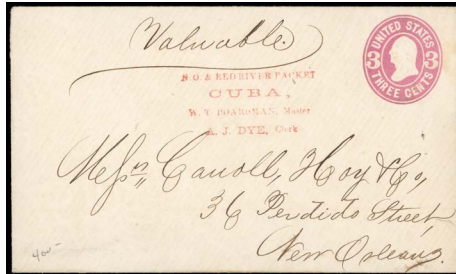 Valuable.
UNITED STATES
3 3
THREE CENTS
N.O. & RED RIVER PACKET
CUBA,
W. T. BOARDMAN, Master
A. J. DYE, Clerk
Mess^rs Carroll, Hoy & Co,
36 Perdido Street,
New Orleans.
400-